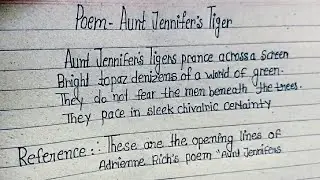 Poem- Aunt Jennifer's Tiger
Aunt Jennifer's Tigers prance across a screen
Bright topaz denizens of a world of green.
They do not fear the men beneath the trees.
They pace in sleek chivalric certainty
Reference:: These are the opening lines of
Adrienne Rich's poem "Aunt Jennifers